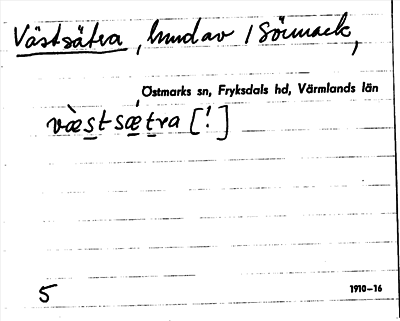 Västsätra, hmd av 1 Sörmack,
Östmarks sn, Fryksdals hd, Värmlands län
væ̀stsǽtra [!]
5
1910–16